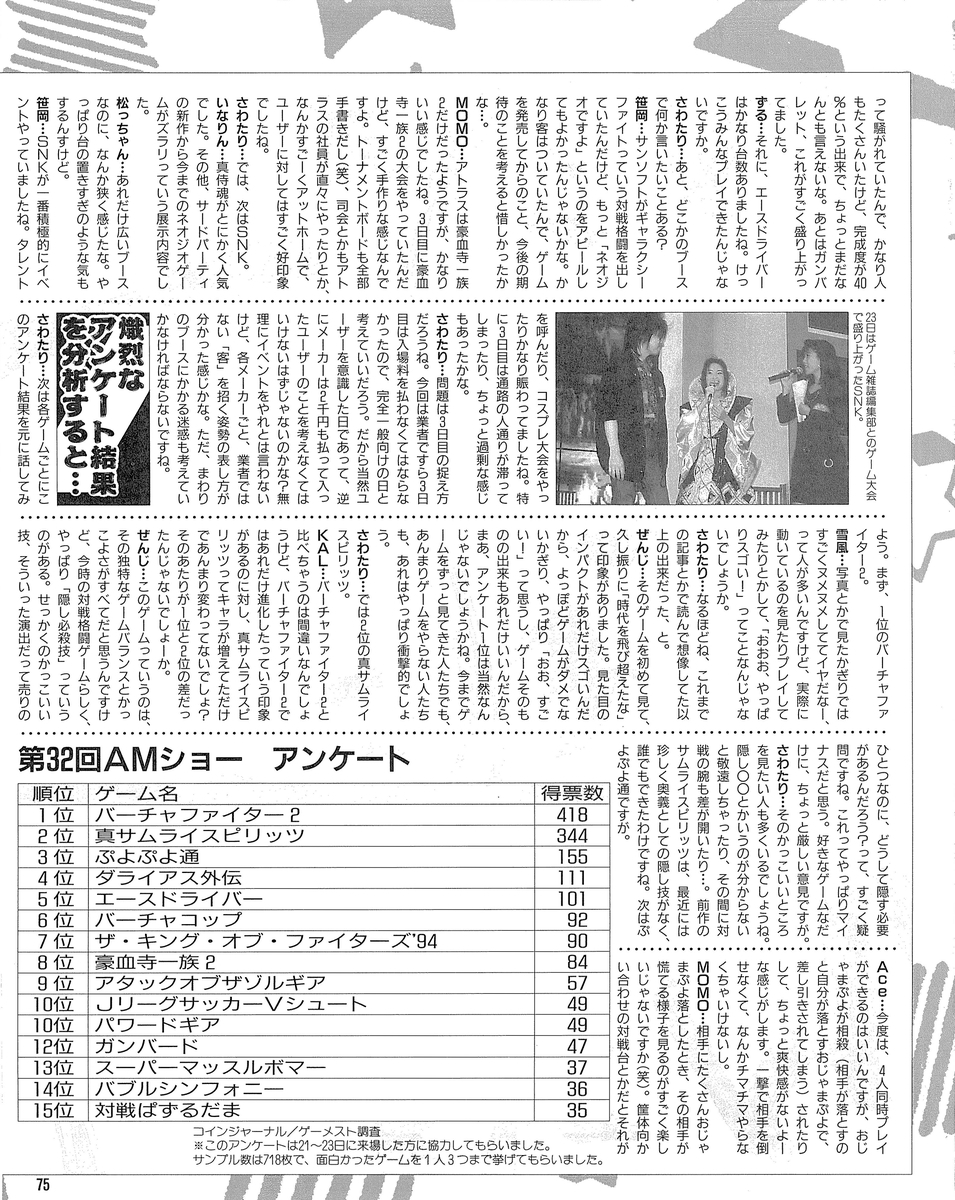 って騒がれていたんで、かなり人
もたくさんいたけど、完成度が40
%という出来で、ちょっとまだな
んとも言えないな。あとはガンバ
レット、これがすごく盛り上がっ
てました。
ずる…それに、エースドライバー
はかなり台数ありましたね。けっ
こうみんなプレイできたんじゃな
いですか。
さわたり…あと、どこかのブース
で何か言いたいことある?
笹岡…サンソフトがギャラクシー
ファイトっていう対戦格闘を出し
ていたんだけど、もっと「ネオジ
オですよ」というのをアピールし
てもよかったんじゃないかな。か
なり客はついていたんで、ゲーム
を発売してからのこと、今後の期
待のことを考えると惜しかったか
な…。
MOMO…アトラスは豪血寺一族
2だけだったようですが、かなり
いい感じでしたね。3日目に豪血
寺一族2の大会をやっていたんだ
けど、すごく手作りな感じなんで
すよ。トーナメントボードも全部
手書きだし(笑)、司会とかもアト
ラスの社員が直々にやったりとか、
なんかすごーくアットホームで、
ユーザーに対してはすごく好印象
でしたね。
さわたり…では、次はSNK。
いなりん…真侍魂がとにかく人気
でした。その他、サードパーティ
の新作から今までのネオジオゲー
ムがズラリっていう展示内容でし
た。
松っちゃん…あれだけ広いブース
なのに、なんか狭く感じたな。や
っぱり台の置きすぎのような気も
するんすけど。
笹岡…SNKが一番積極的にイベ
ントやっていましたね。タレント
23日はゲーム雑誌編集部とのゲーム大会
で盛り上がったSNK。
を呼んだり、コスプレ大会をやっ
たりかなり賑わってましたね。特
に3日目は通路の人通りが滞って
しまったり、ちょっと過剰な感じ
もあったかな。
さわたり…問題は3日目の捉え方
だろうね。今回は業者ですら3日
目は入場料を払わなくてはならな
かったので、完全一般向けの日と
考えていいだろう。だから当然ユ
ーザーを意識した日であって、逆
にメーカーは2千円も払って入っ
たユーザーのことを考えなくては
いけないはずじゃないのかな?無
理にイベントをやれとは言わない
けど、各メーカーごと、業者では
ない「客」を招く姿勢の表し方が
分かった感じかな。ただ、まわり
のブースにかかる迷惑も考えてい
かなければならないですね。
熾烈な
アンケート結果
を分析すると…
さわたり…次は各ゲームごとにこ
のアンケート結果を元に話してみ
よう。まず、1位のバーチャファ
イター2。
雪風…写真とかで見たかぎりでは
すごくヌメヌメしててイヤだなー、
って人が多いんですけど、実際に
動いているのを見たりプレイして
みたりとかして、「おおお、やっぱ
りスゴい!」ってことなんじゃな
いでしょうか。
さわたり…なるほどね、これまで
の記事とかで読んで想像してた以
上の出来だった、と。
ぜんじ…そのゲームを初めて見て、
久し振りに「時代を飛び超えたな」
って印象がありました。見た目の
インパクトがあれだけスゴいんだ
から、よっぽどゲームがダメでな
いかぎり、やっぱり「おお、すご
い!」って思うし、ゲームそのも
のの出来もあれだけいいんだから、
まあ、アンケート1位は当然なん
じゃないでしょうかね。今までゲ
ームをずっと見てきた人たちでも、
あんまりゲームをやらない人たち
も、あれはやっぱり衝撃的でしょ
う。
さわたり…では2位の真サムライ
スピリッツ。
KAL…バーチャファイター2と
比べちゃうのは間違いなんでしょ
うけど、バーチャファイター2で
はあれだけ進化したっていう印象
があるのに対し、真サムライスピ
リッツってキャラが増えてただけ
であんまり変わってないでしょ?
そのあたりが1位と2位の差だっ
たんじゃないでしょーか。
ぜんじ…このゲームっていうのは、
その独特なゲームバランスとかっ
こよさがすべてだと思うんですけ
ど、今時の対戦格闘ゲームらしく、
やっぱり「隠し必殺技」っていう
のがある。せっかくのかっこいい
技、そういった演出だって売りの
ひとつなのに、どうして隠す必要
があるんだろう?って、すごく疑
問ですね。これってやっぱりマイ
ナスだと思う。好きなゲームなだ
けに、ちょっと厳しい意見ですが。
さわたり…そのかっこいいところ
を見たい人も多くいるでしょうね。
隠し〇〇とかいうのが分からない
と敬遠しちゃったり、その間に対
戦の腕も差が開いたり…。前作の
サムライスピリッツは、最近には
珍しく奥義としての隠し技がなく、
誰でもできたわけですね。次はぷ
よぷよ通ですが。
Ace…今度は、4人同時プレイ
ができるのはいいんですが、おじ
ゃまぷよが相殺(相手が落とすの
と自分が落とすおじゃまぷよで、
差し引きされてしまう)されたり
して、ちょっと爽快感がないよー
な感じがします。一撃で相手を倒
せなくて、なんかチマチマやらな
くちゃいけないし。
MOMO…相手にたくさんおじゃ
まぷよ落としたとき、その相手が
慌てる様子を見るのがすごく楽し
いじゃないですか(笑)。筐体向か
い合わせの対戦台とかだとそれが
第32回AMショー　アンケート
順位 ゲーム名 得票数
1位 バーチャファイター2 418
2位 真サムライスピリッツ 344
3位 ぷよぷよ通 155
4位 ダライアス外伝 111
5位 エースドライバー 101
6位 バーチャコップ 92
7位 ザ・キング・オブ・ファイターズ'94 90
8位 豪血寺一族2 84
9位 アタックオブザゾルギア 57
10位 JリーグサッカーVシュート 49
10位 パワードギア 49
12位 ガンバード 47
13位 スーパーマッスルボマー 37
14位 バブルシンフォニー 36
15位 対戦ぱずるだま 35
コインジャーナル/ゲーメスト調査
※このアンケートは21〜23日に来場した方に協力してもらいました。
サンプル数は718枚で、面白かったゲームを1人3つまで挙げてもらいました。
75